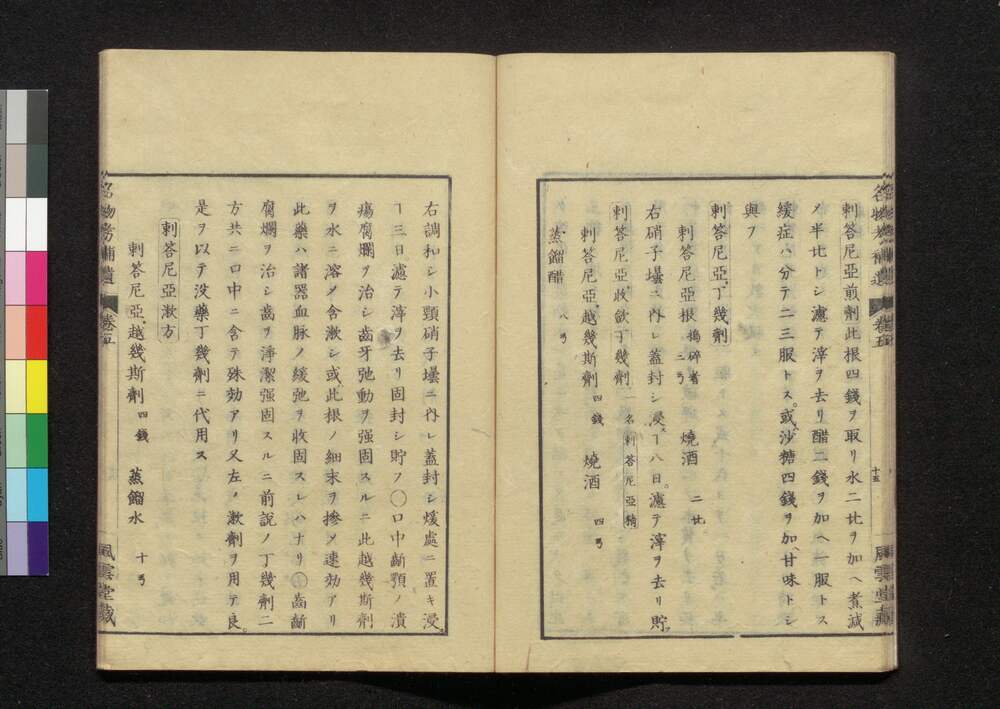 刺答尼亞煎劑此根四錢ヲ取リ水二㪷ヲ加ヘ煮減
メ半㪷トシ濾テ滓ヲ去リ醋二錢ヲ加ヘ一服トス
緩症ハ分テ二三服トス。或沙糖四錢ヲ加、甘味トシ
與フ
刺答尼亞、丁幾劑
刺答尼亞根 搗碎者 二弓 燒酒 二㪷
右硝子壜ニ內レ蓋封シ浸ヿ八日。濾テ滓ヲ去リ貯。
刺答尼亞收歛丁幾劑 一名刺答尼亞精
刺答尼亞、越幾斯劑 四錢 燒酒 四弓
蒸餾醋 八弓
右調和シ小頸硝子壜ニ內レ蓋封シ煖處ニ置キ浸。
ヿ三日。濾テ滓ヲ去リ固封シ貯フ〇口中齗顎ノ潰
瘍腐爛ヲ治シ齒牙弛動ヲ强固スルニ此越幾斯劑
ヲ水ニ溶メ含漱シ或此根ノ細末ヲ摻メ速効アリ
此藥ハ諸器血脉ノ緩弛ヲ收固スレハナリ〇齒齗
腐爛ヲ治シ齒ヲ淨潔强固スルニ前說ノ丁幾劑二
方共ニ口中ニ含テ殊効アリ又左ノ漱劑ヲ用テ良。
是ヲ以テ没藥丁幾劑ニ代用ス
刺答尼亞漱方
刺答尼亞、越幾斯劑 四錢 蒸餾水 十弓
名物考補遺 卷五 十五 風雲堂藏
名物考補遺 卷五 風雲堂藏